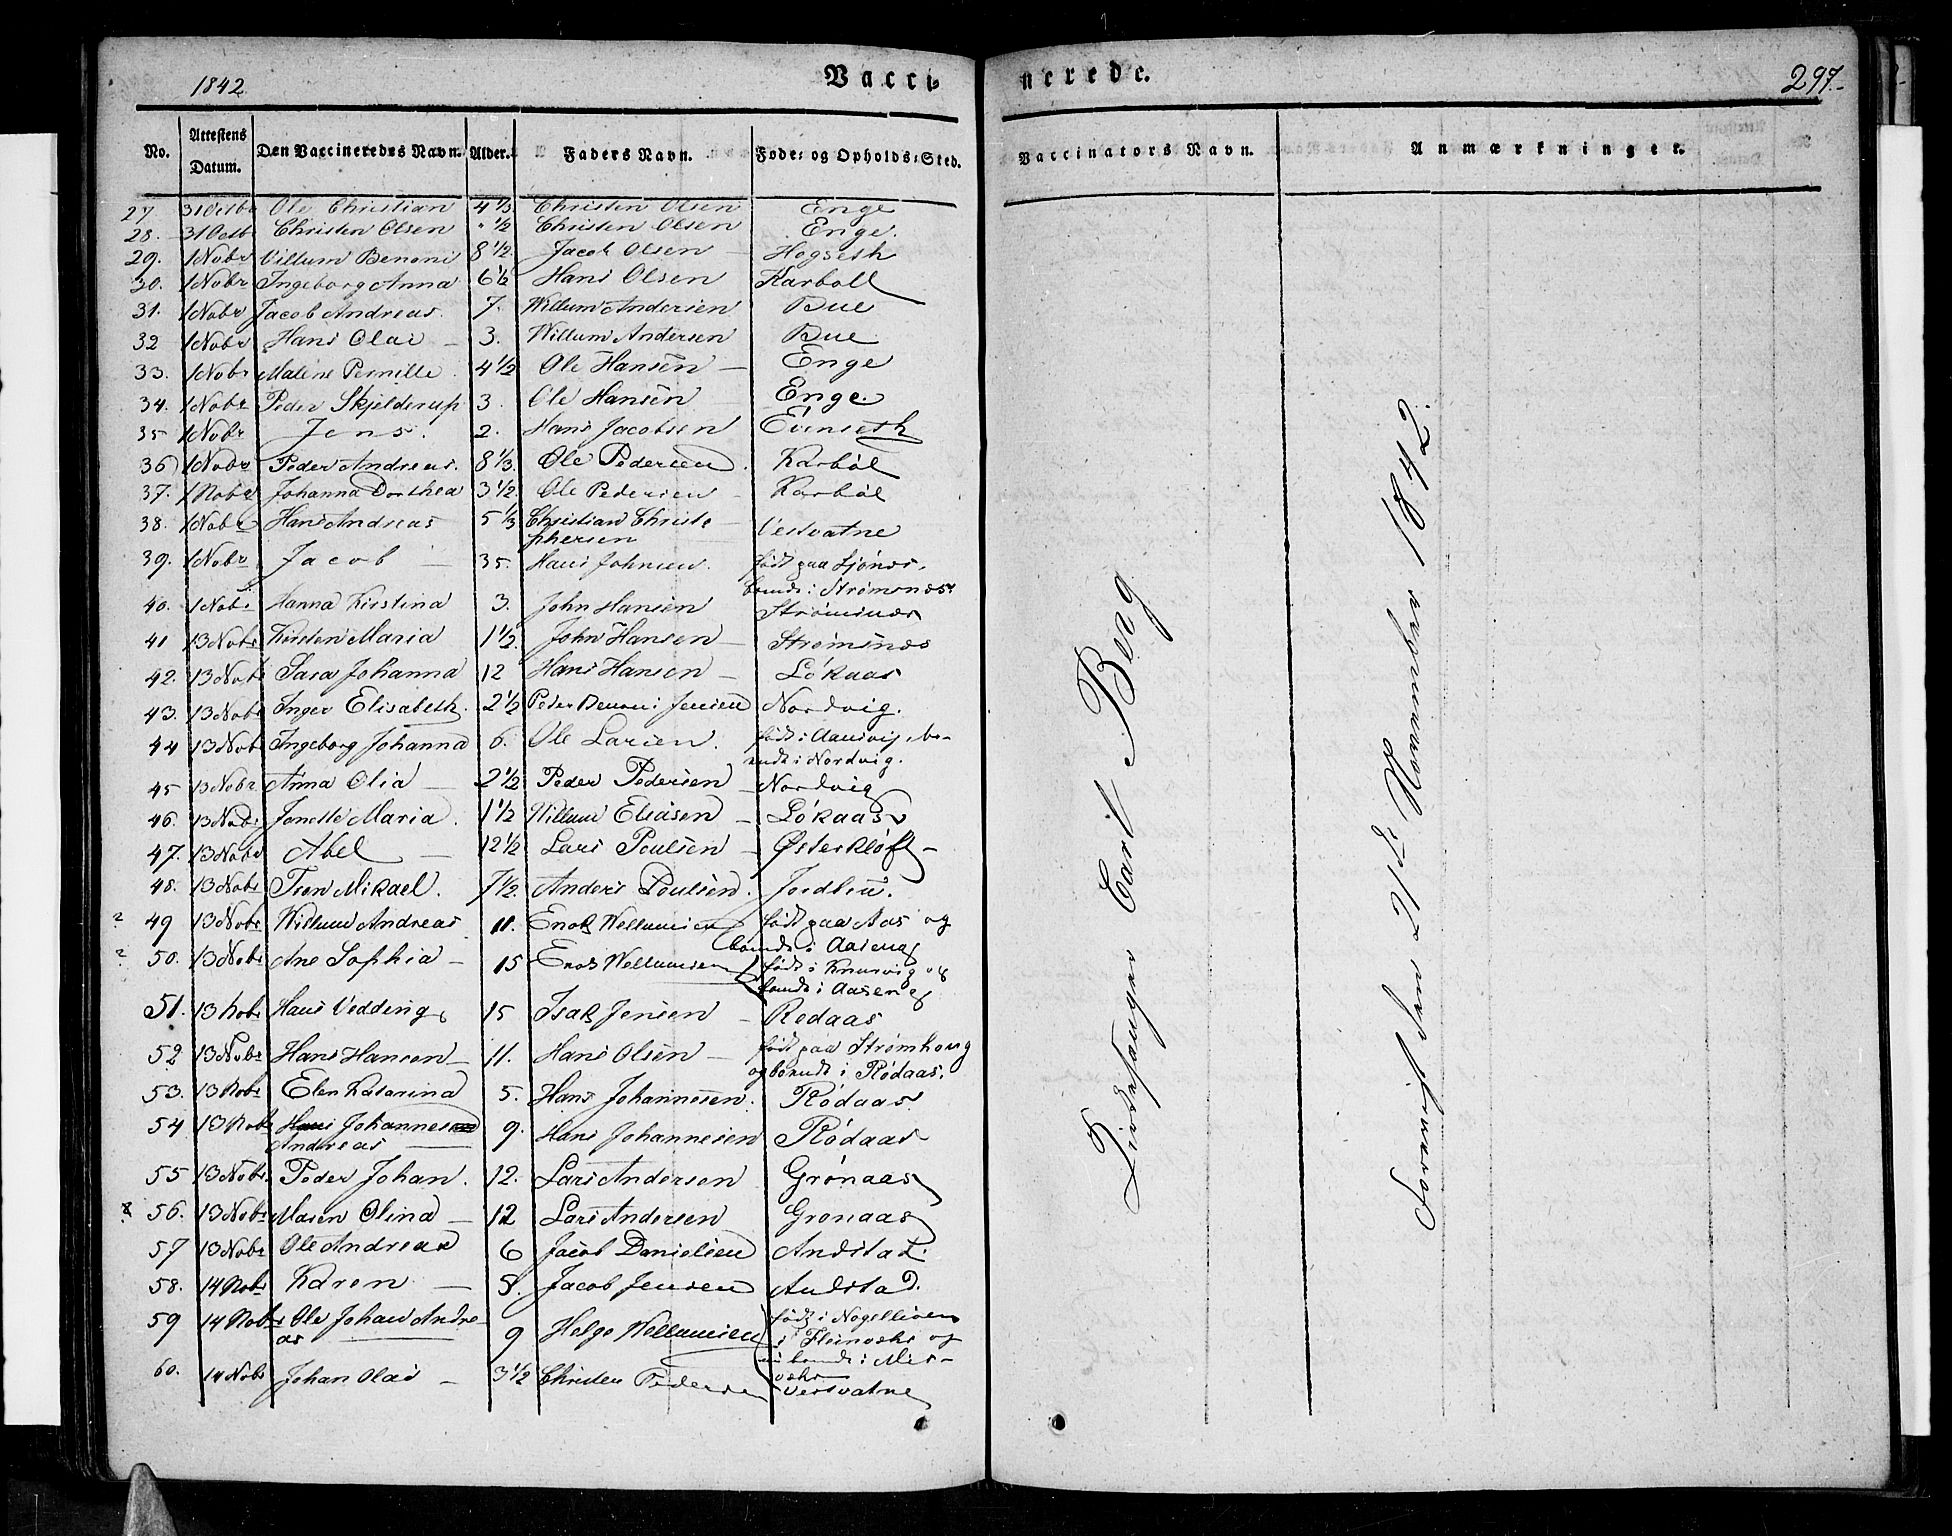 1842 Vacci-
nerede. 297.-
No. Attestens Datum. Den Vaccineredes Navn. Alder. Faders Navn. Føde- og Opholds-Sted.
Vaccinators Navn. Anmærkninger.
27. 31 Octbr Ole Christian 4 1/3 Christen Olsen Enge
28. 31 Octb Christen Olsen " 1/2 Christen Olsen Enge.
29. 1 Nobr Villum Benoni 8 1/2 Jacob Olsen — Hogseth
30. 1 Nobr Ingeborg Anna 6 1/2 Hans Olsen Karboll
31. 1 Nobr Jacob Andreas. 7. Willum Andersen Bue
32 1 Nobr Hans Olai — 3. Willum Andersen Bue
33. 1 Nobr Malene Pernille. 4 1/2 Ole Hansen — Enge
34. 1 Nobr Peder Skjelderup 3. Ole Hansen — Enge.
35 1 Nobr Jens. 2. Hans Jacobsen Evenseth
36 1 Nobr Peder Andreas. 8 1/3. Ole Pedersen. Karböl
37. 1 Nobr Johanna Dorthea 3 1/2. Ole Pedersen - Karböl
38. 1 Nobr Hans Andreas 5 1/3 Christian Christo- Vestvatne
phersen
39. 1 Nobr Jacob — 35. Hans Johnsen. født paa Sjönes,
boende i Strømsnæs
40. 1 Nobr Hanna Kirstina 3. John Hansen Strømsnæs
41 13 Nobr Kirsten Maria 1 1/2. John Hansen — Strømsnæs
42. 13 Nobr Sara Johanna 12 Hans Hansen — Lökaas
43. 13 Nobr Inger Elisabeth. 2 1/2 Peder Benoni Jensen Nordvig.
44 13 Nobr Ingeborg Johanna 6. Ole Larsen. født i Aansvig, bo-
ende i Nordvig.
45 13 Nobr Anna Olia — 2 1/2 Peder Pedersen — Nordvig
46. 13 Nobr Jonette Maria. 1 1/2 Willum Eliasen — Lökaas
47. 13 Nobr Abel — 12 1/2 Lars Poulsen — Østerkløft -
48. 13 Nobr Iven Mikael. 7 1/2. Anders Poulsen. Jordbru.
? 49 13 Nobr Willum Andreas 11. Enok Wellumsen født paa Aas og
boende i Aaseng
? 50. 13 Nobr Ane Sophia — 15 Enok Wellumsen født i Knarvig og
boende i Aaseng
51. 13 Nobr Hans Vedding 15 Isak Jensen — Rødaas
52 13 Nobr Hans Hansen — 11. Hans Olsen — født paa Strømhoug
og boende i Rödaas.
53. 13 Nobr Elen Katarina 5. Hans Johannesen. Rödaas
54 13 Nobr Hans Johannes 9. Hans Johannesen Rödaas
Andreas —
55 13 Nobr. Peder Johan. 12. Lars Andersen Grönaas
56. 13 Nobr Maren Olina — 12 Lars Andersen Grønaas
57 13 Nobr Ole Andreas 6 Jacob Danielsen Andstad.
58. 14 Nobr Karen — 8. Jacob Jensen Andstad.
59 14 Nobr Ole Johan Andre- 9 Helge Wellumsen født i
as i Fleinvær og
nu boende i Mis-
vær
60. 14 Nobr Johan Olai — 3 1/2 Christen Pedersen Vestvatne
Caril Berg
den 21de November 1842.